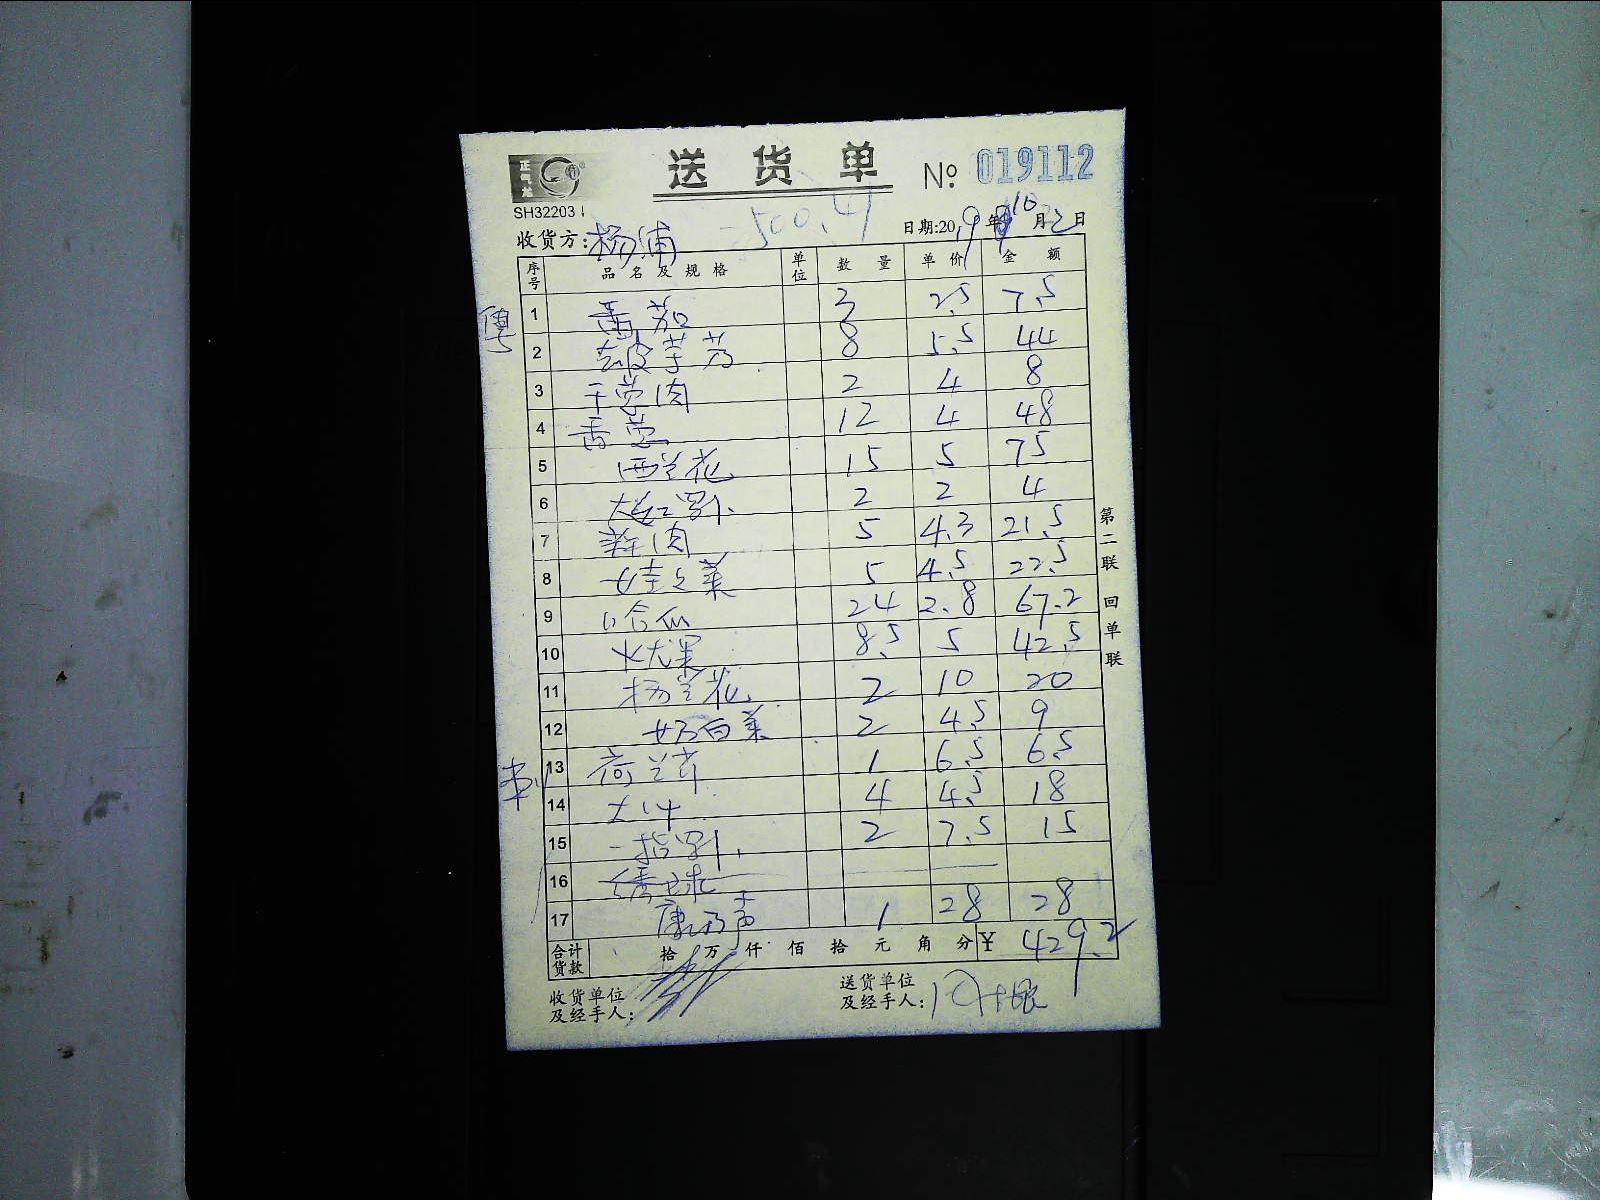 正气龙
送货单 № 019112
SH32203
500.41
收货方: 杨浦 日期:2019年10月2日
序号 品名及规格 单位 数量 单价 金额
1 番茄 3 2.5 7.5
2 去皮芋艿 8 5.5 44
3 干葱肉 2 4 8
4 香葱 12 4 48
5 西兰花 15 5 75
6 大红椒 2 2 4
7 5 4.3 21.5
8 娃娃菜 5 4.5 22.5
9 哈瓜 24 2.8 67.2
10 火龙果 8.5 5 42.5
11 杨兰花 2 10 20
12 奶白菜 2 4.5 9
13 荷兰芹 1 6.5 6.5
14 4 4.5 18
15 2 7.5 15
16 绣球
17 康乃馨 1 28 28
合计货款 拾万仟佰拾元角分 ¥ 429.2
收货单位及经手人:
送货单位及经手人:
第二联 回单联